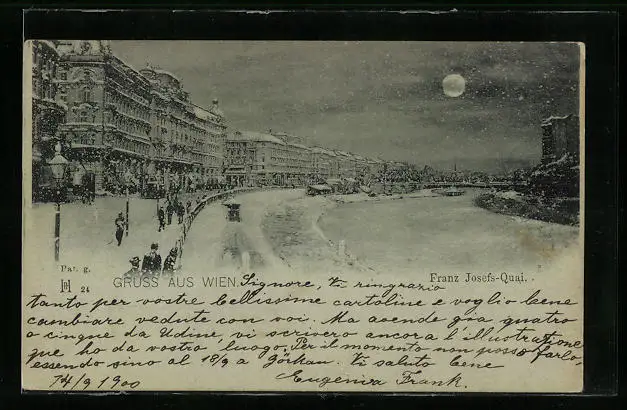 Pat. g.
24
GRUSS AUS WIEN.
Franz Josefs-Quai.
Signore, Vi ringrazio
tanto per vostre bellissime cartoline e voglio bene
cambiare vedute con voi. Ma avende gia quatro
o cinque da Udine, vi scrivero ancora l'illustratione
que ho da vostro luogo. Per il momento non posso farlo
essendo sino al 18/9 a Görkau. Vi saluto bene
14/9 1900 Eugenia Frank.